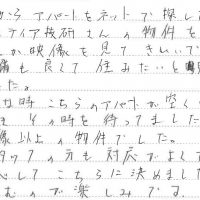 から アパートをネットで探し
ティア技研さんの物件を
映像を見てきれいで
備も良くて住みたいと
た。
な時 こちらのアパートが空く
その時を待ってました
像以上の物件でした。
タッフの方も対応がよくて
心してこちらに決めました
むので楽しみです。